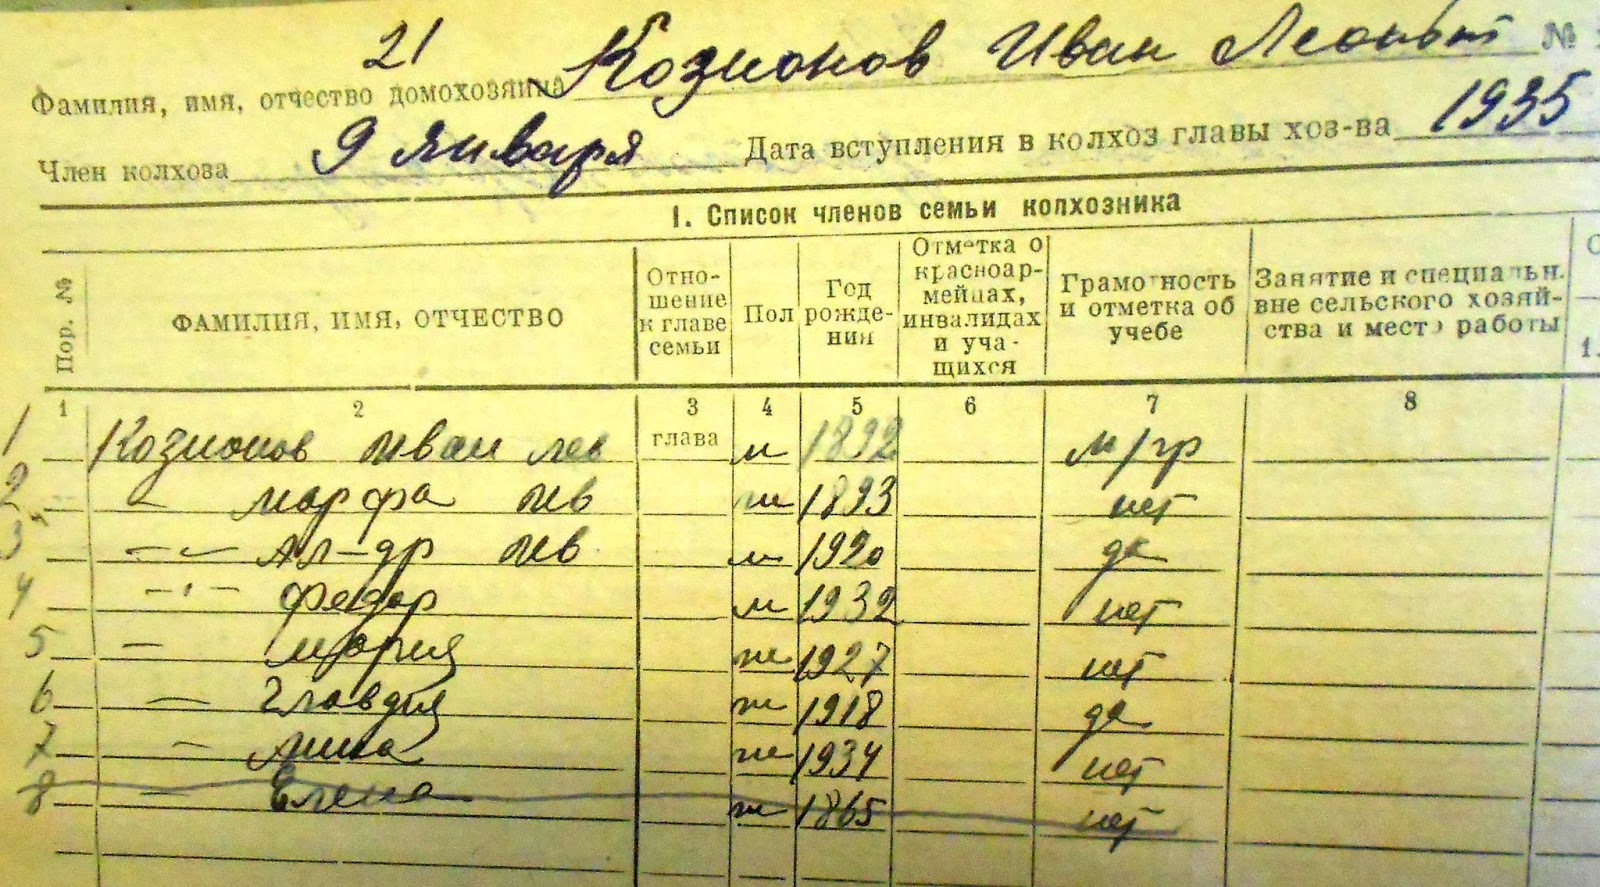 21
Фамилия, имя, отчество домохозяина Козионов Иван Леонт №
Член колхоза 9 Января Дата вступления в колхоз главы хоз-ва 1935
I. Список членов семьи колхозника
Пор. №
ФАМИЛИЯ, ИМЯ, ОТЧЕСТВО
Отно-
шение
к главе
семьи
Пол
Год
рожде-
ния
Отметка о
красноар-
мейцах,
инвалидах
и уча-
щихся
Грамотность
и отметка об
учебе
Занятие и специальн.
вне сельского хозяй-
ства и место работы
1.
1 2 3 4 5 6 7 8
1 Козионов Иван Лев глава м 1892 м/гр
2 — Марфа Ив ж 1893 нет
3 —"— Ал-др Ив м 1920 да
4 —"— Федор м 1932 нет
5 — Мария ж 1927 нет
6 — Главдия ж 1918 да
7 — ж 1934 нет
8 — Елена ж 1865 нет